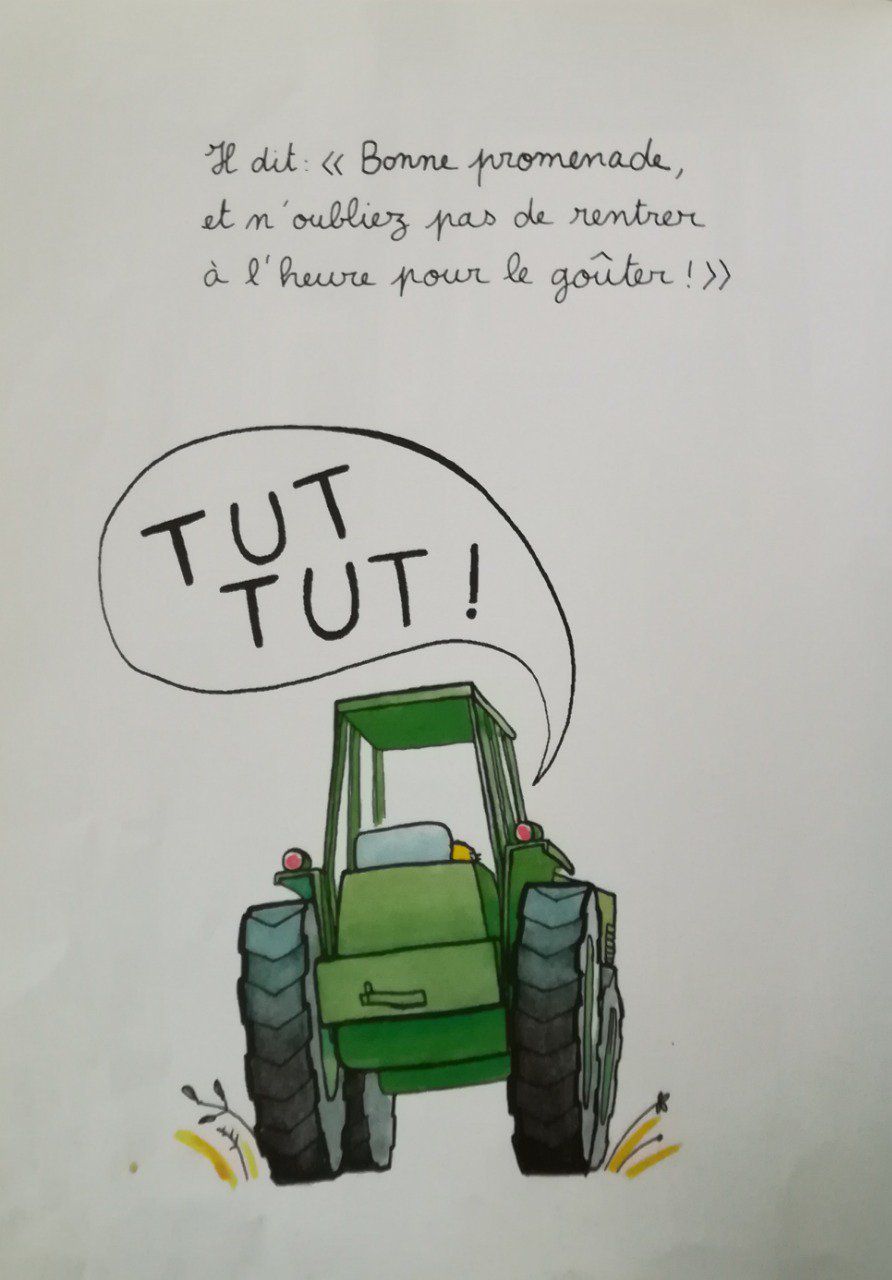 Il dit: « Bonne promenade,
et n'oubliez pas de rentrer
à l'heure pour le goûter ! »
TUT
TUT !